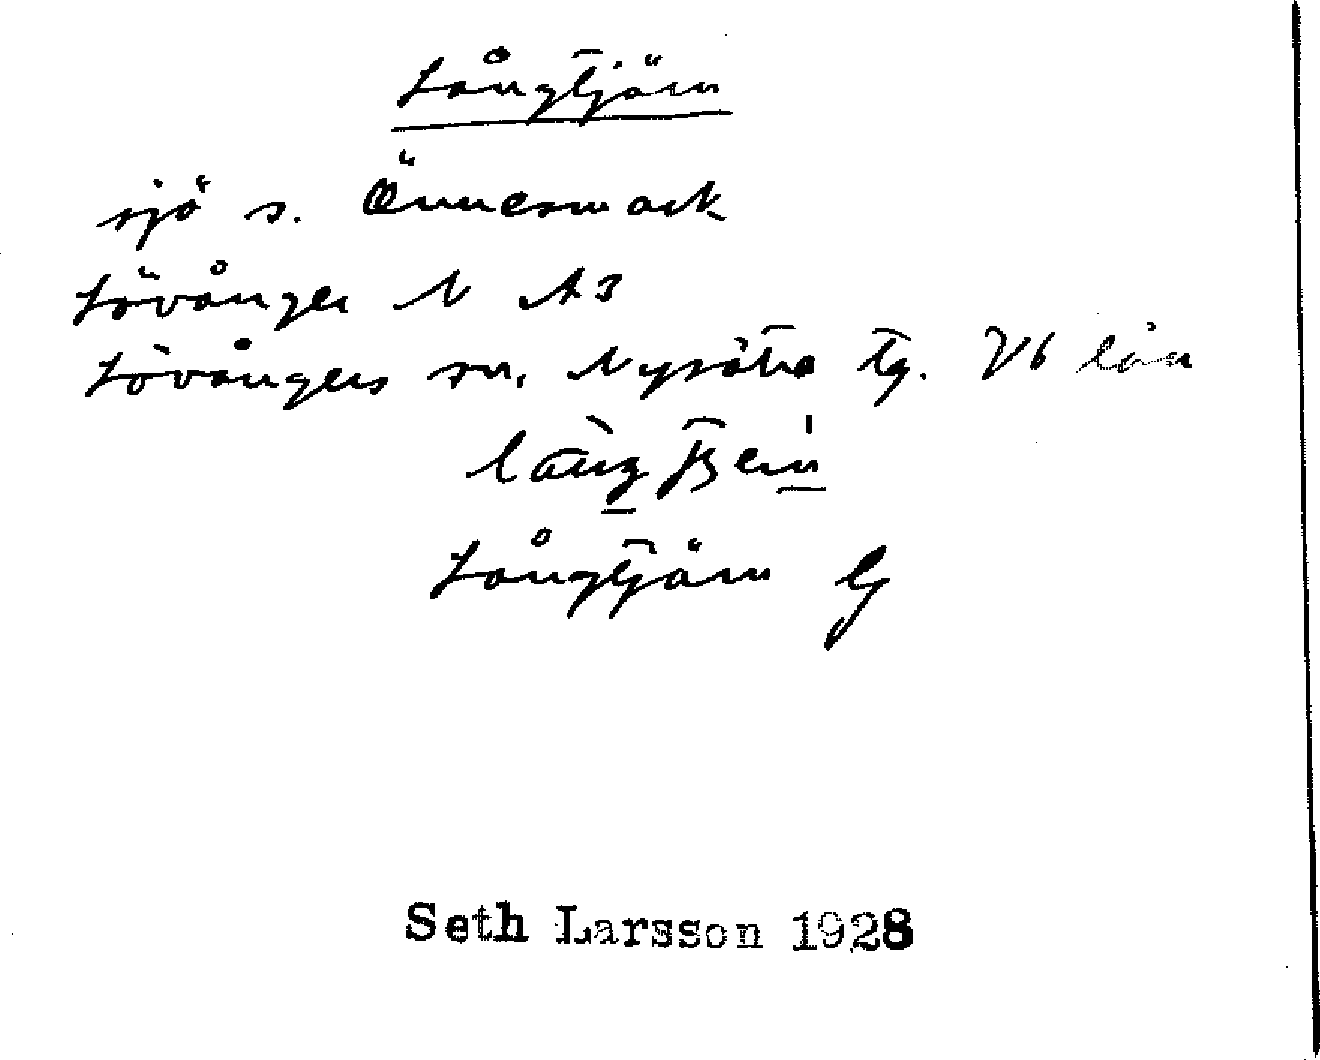 Långtjärn
sjö s. Önnesmark
Lövånger N A3
Lövångers sn. Nysätra tg. Vb län
Långtjärn G
Seth Larsson 1928